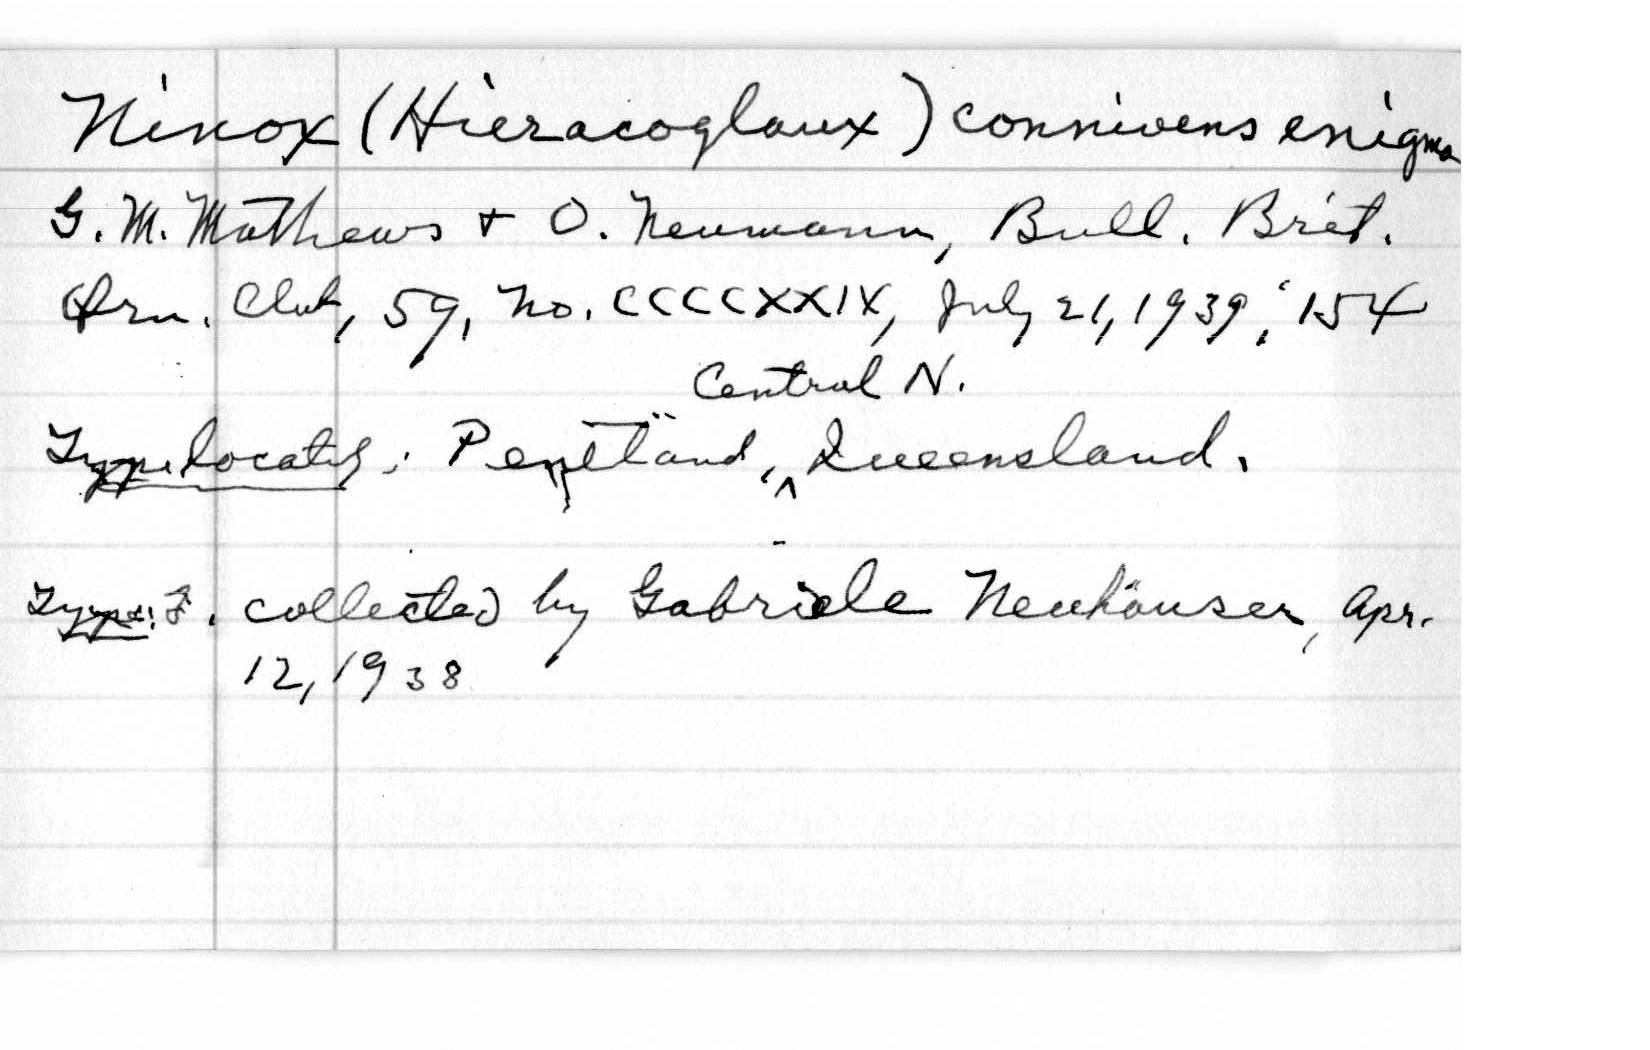 Ninox (Hieracoglaux) connivens enigma
G. M. Mathews + O. Neumann, Bull. Brit.
Orn. Club, 59, no. CCCCXXIX, July 21, 1939; 154
Central N.
Type locality: Pentland, ^ Queensland.
Type: F. collected by Gabriele Neuhäuser, Apr.
12, 1938